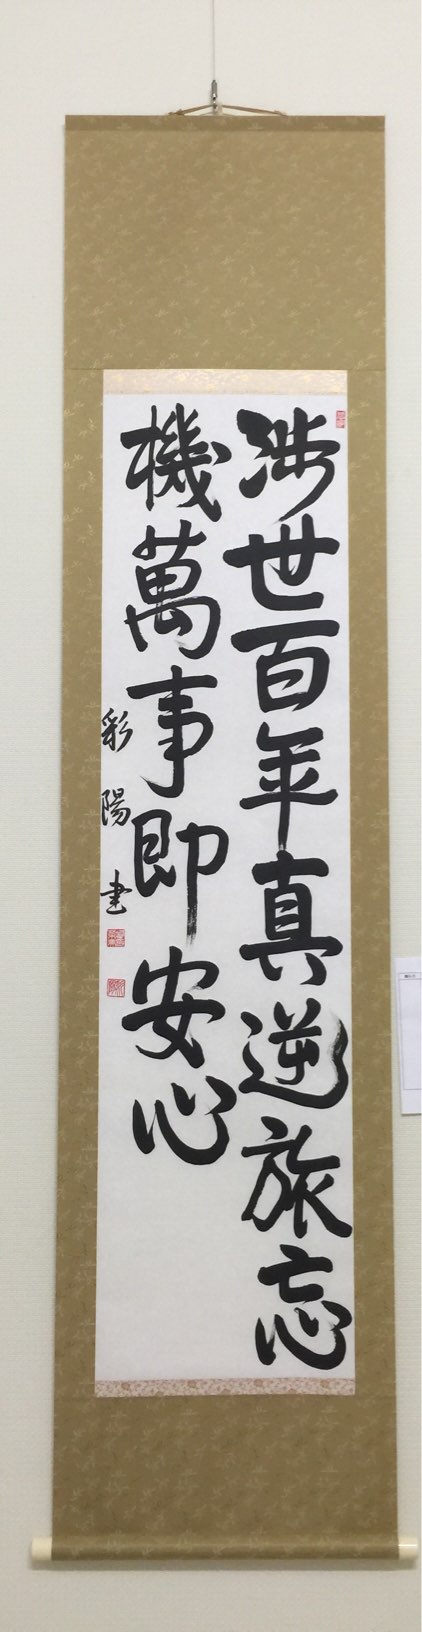 涉世百年真逆旅忘
機萬事即安心
彩陽書